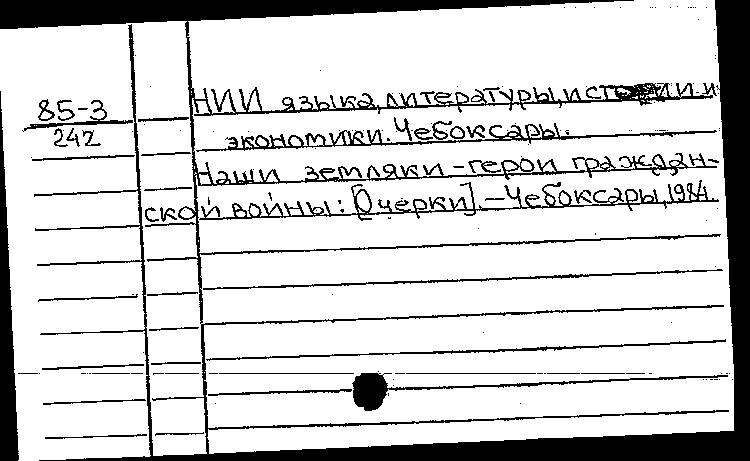 85-3
242
НИИ языка, литературы, истории и
экономики. Чебоксары.
Наши земляки - герои граждан-
ской войны: [Очерки]. - Чебоксары, 1984.